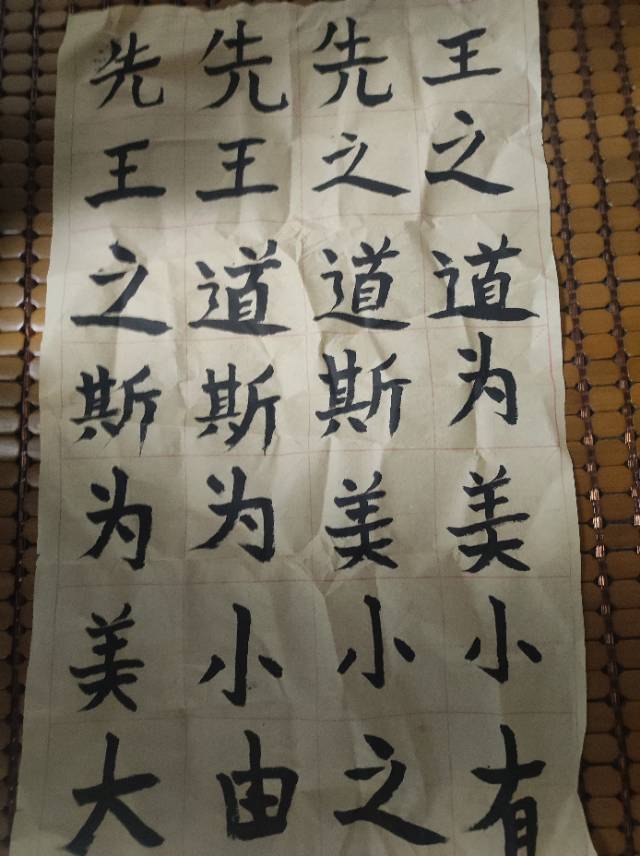 先先先王
王王之之
之道道道
斯斯斯为
为为美美
美小小小
大由之有